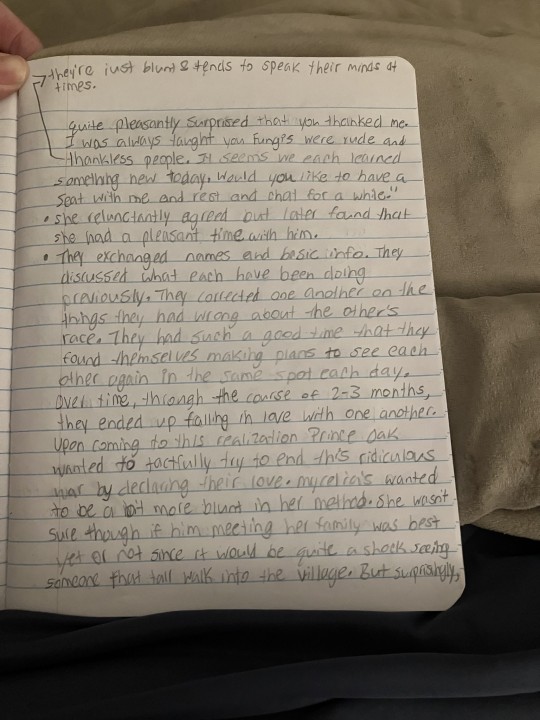 they're just blunt & tends to speak their minds at
times.
quite pleasantly surprised that you thanked me.
I was always taught you Fungis were rude and
thankless people. It seems we each learned
something new today. Would you like to have a
seat with me and rest and chat for a while."
• she relunctantly agreed but later found that
she had a pleasant time with him.
• They exchanged names and basic info. They
discussed what each have been doing
previously. They corrected one another on the
things they had wrong about the other's
race. They had such a good time that they
found themselves making plans to see each
other again in the same spot each day.
Over time, through the course of 2-3 months,
they ended up falling in love with one another.
Upon coming to this realization Prince Oak
wanted to tactfully try to end this ridiculous
war by declaring their love. myrelia's wanted
to be a bit more blunt in her method. She wasn't
sure though if him meeting her family was best
yet or not since it would be quite a shock seeing
someone that tall walk into the village. But surprisingly,